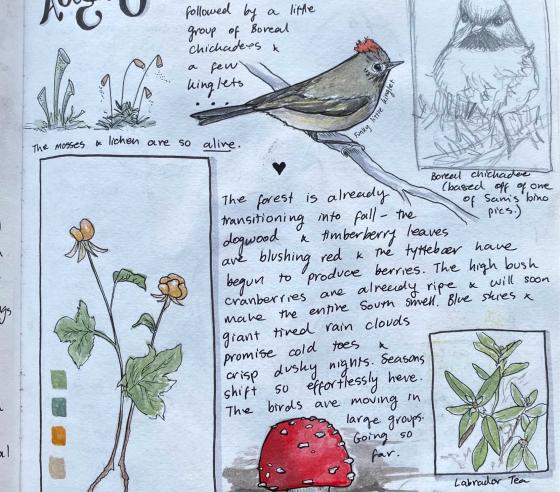 followed by a little
group of Boreal
chickadees &
a few
kinglets
...
Funky little kinglet
The mosses & lichen are so alive.
Boreal chickadee
(based off of one
of Sam's bino
pics.)
The forest is already
transitioning into fall - the
dogwood & timberberry leaves
are blushing red & the tyttebær have
begun to produce berries. The high bush
cranberries are already ripe & will soon
make the entire South smell. Blue skies &
giant tired rain clouds
promise cold toes &
crisp dusky nights. Seasons
shift so effortlessly here.
The birds are moving in
large groups.
Going so
far.
Labrador Tea